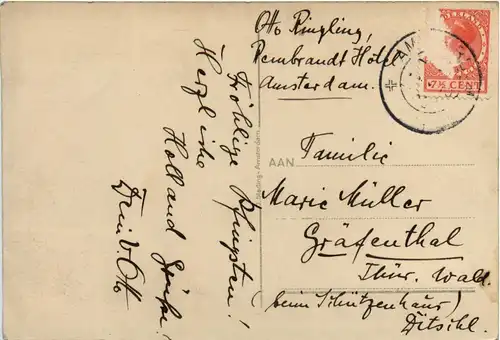 Otto Ringling,
Rembrandt Hotel
Amsterdam.
NEDERLAND
7½ CENT
AM
AAN
Familie
Marie Müller
Gräfenthal
Thür. Wald.
(beim Schützenhaus)
Fröhliche Pfingsten!
Herzliche
Holland Grüße!
Dein Otto
Amsterdam